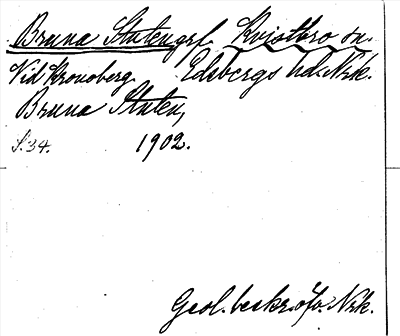 Bruna Stutengrl. Kvistbro sn.
Vid Kronoberg. Edsbergs hd. Nrk.
Bruna Stuten,
S.34. 1902.
Geol. beskr. öfv. Nrk.